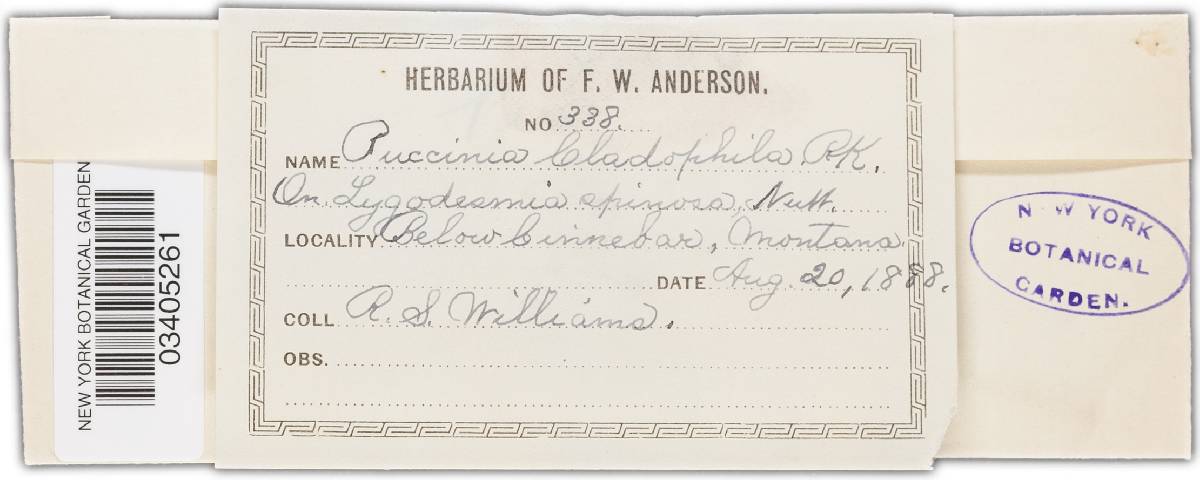 HERBARIUM OF F. W. ANDERSON.
NO 338.
NAME Puccinia Cladophila PK.
On Lygodesmia spinosa, Nutt.
LOCALITY Below Cinnebar, Montana.
DATE Aug. 20, 1888.
COLL R. S. Williams.
OBS.
NEW YORK BOTANICAL GARDEN
03405261
NEW YORK
BOTANICAL
GARDEN.